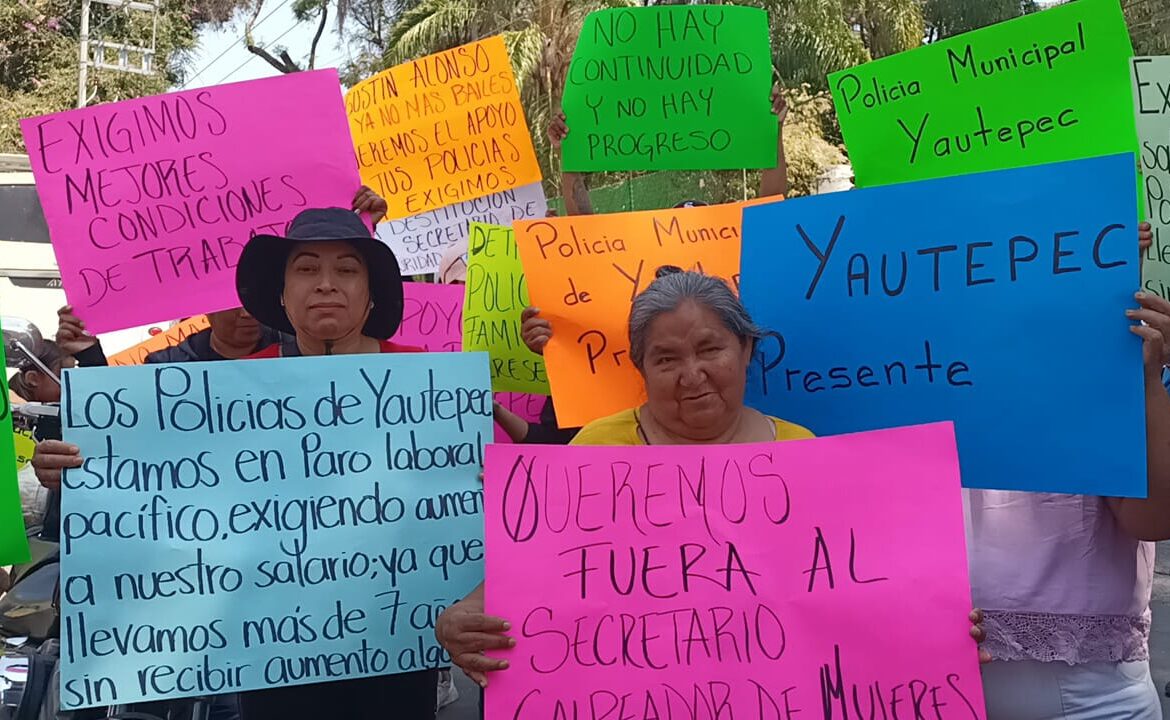 EXIGIMOS
MEJORES
CONDICIONES
DE TRABAJO
AGUSTIN ALONSO
YA NO MAS BAILES
QUEREMOS EL APOYO
TUS POLICIAS
EXIGIMOS
DESTITUCIÓN
SECRETARIO DE
NO HAY
CONTINUIDAD
Y NO HAY
PROGRESO
Policia Municipal
Yautepec
POLIC
FAMILI
Policia Munici
de Y
Pr
YAUTEPEC
Presente
Los Policias de Yautepec
estamos en Paro laboral
pacífico, exigiendo aumen
a nuestro salario; ya que
llevamos más de 7 añ
sin recibir aumento alg
QUEREMOS
FUERA AL
SECRETARIO
GOLPEADOR DE MUJERES